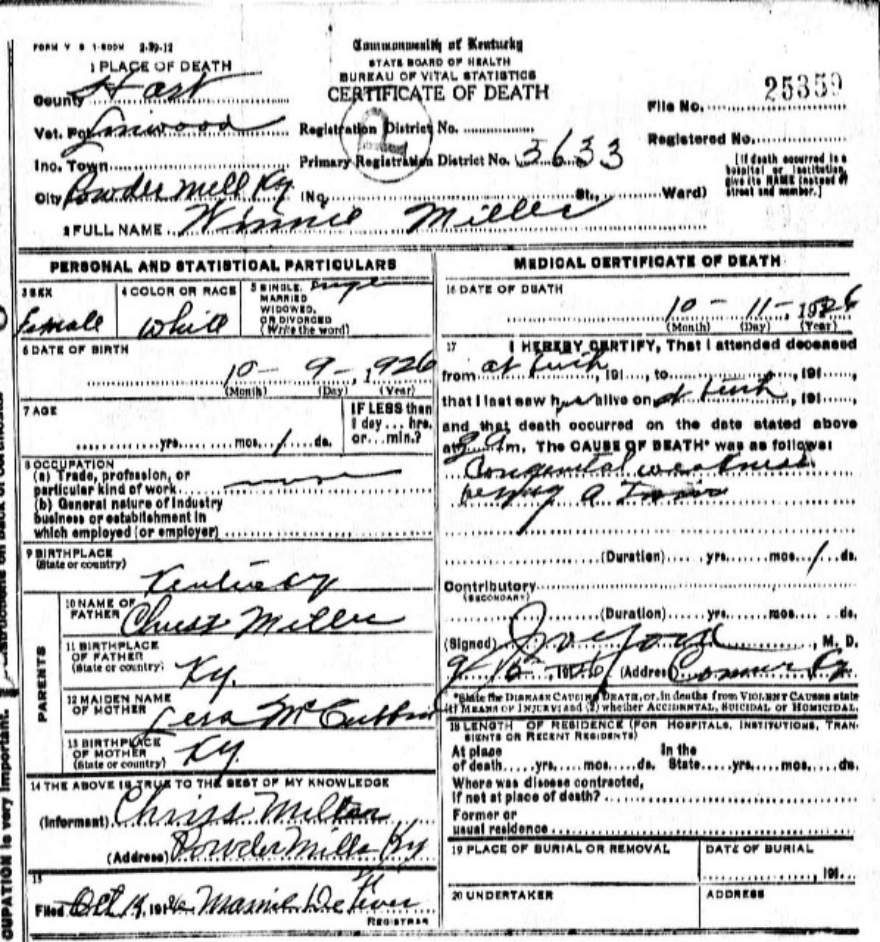 FORM V S 1-500M 2-29-12
Commonwealth of Kentucky
STATE BOARD OF HEALTH
BUREAU OF VITAL STATISTICS
CERTIFICATE OF DEATH
1 PLACE OF DEATH
County Hart
Vot. Pct. Linwood
Inc. Town
City Powder Mill Ky (No. St., Ward)
Registration District No.
Primary Registration District No. 3633
File No. 25359
Registered No.
[If death occurred in a
hospital or institution,
give its NAME instead of
street and number.]
2 FULL NAME Winnie Miller
PERSONAL AND STATISTICAL PARTICULARS
3 SEX
Female
4 COLOR OR RACE
White
5 SINGLE, single
MARRIED
WIDOWED,
OR DIVORCED
(Write the word)
6 DATE OF BIRTH
10 - 9 - , 1926
(Month) (Day) (Year)
7 AGE
yrs. mos. 1 ds.
IF LESS than
1 day ... hrs.
or ... min.?
8 OCCUPATION
(a) Trade, profession, or
particular kind of work none
(b) General nature of industry
business or establishment in
which employed (or employer)
9 BIRTHPLACE
(State or country)
Kentucky
PARENTS
10 NAME OF
FATHER Christ Miller
11 BIRTHPLACE
OF FATHER
(State or country) Ky.
12 MAIDEN NAME
OF MOTHER Lera McCubbin
13 BIRTHPLACE
OF MOTHER
(State or country) Ky
14 THE ABOVE IS TRUE TO THE BEST OF MY KNOWLEDGE
(Informant) Chriss
(Address) Powder Mills Ky
15
Filed Oct 191 Mamie
REGISTRAR
MEDICAL CERTIFICATE OF DEATH
16 DATE OF DEATH
10 - 11 - , 1926
(Month) (Day) (Year)
17 I HEREBY CERTIFY, That I attended deceased
from at birth , 191 , to , 191 ,
that I last saw her alive on at birth , 191 ,
and that death occurred on the date stated above
at m. The CAUSE OF DEATH* was as follows:
Congenital weakness
being a Twin
(Duration) yrs. mos. 1 ds.
Contributory
(SECONDARY)
(Duration) yrs. mos. ds.
(Signed) , M. D.
(Address)
*State the DISEASE CAUSING DEATH, or, in deaths from VIOLENT CAUSES state
(1) MEANS OF INJURY; and (2) whether ACCIDENTAL, SUICIDAL or HOMICIDAL.
18 LENGTH OF RESIDENCE (FOR HOSPITALS, INSTITUTIONS, TRAN-
SIENTS OR RECENT RESIDENTS)
At place In the
of death yrs. mos. ds. State yrs. mos. ds.
Where was disease contracted,
if not at place of death?
Former or
usual residence
19 PLACE OF BURIAL OR REMOVAL
DATE OF BURIAL
, 191
20 UNDERTAKER
ADDRESS
CUPATION is very important.